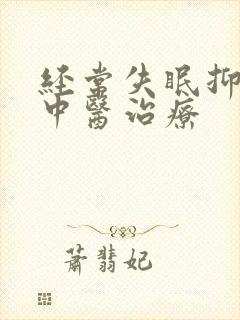 經常失眠抑
中醫治療
蕭翡妃